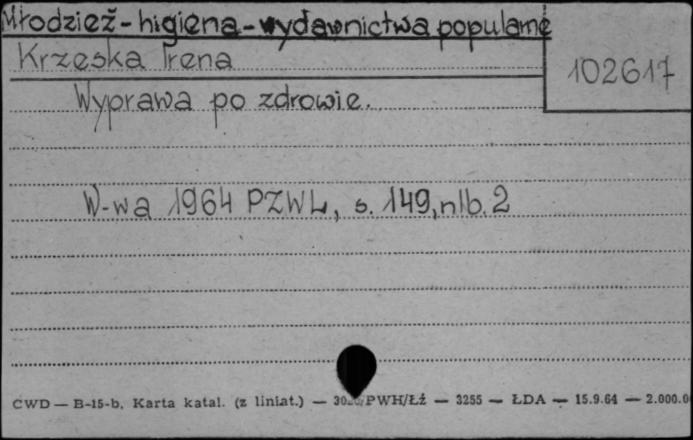 Młodzież - higiena - wydawnictwa popularne
Krzeska Irena
102617
Wyprawa po zdrowie.
W-wa 1964 PZWL, s. 149, nlb. 2
CWD — B-15-b, Karta katal. (z liniat.) — PWH/Łź — 3255 — ŁDA — 15.9.64 — 2.000.0